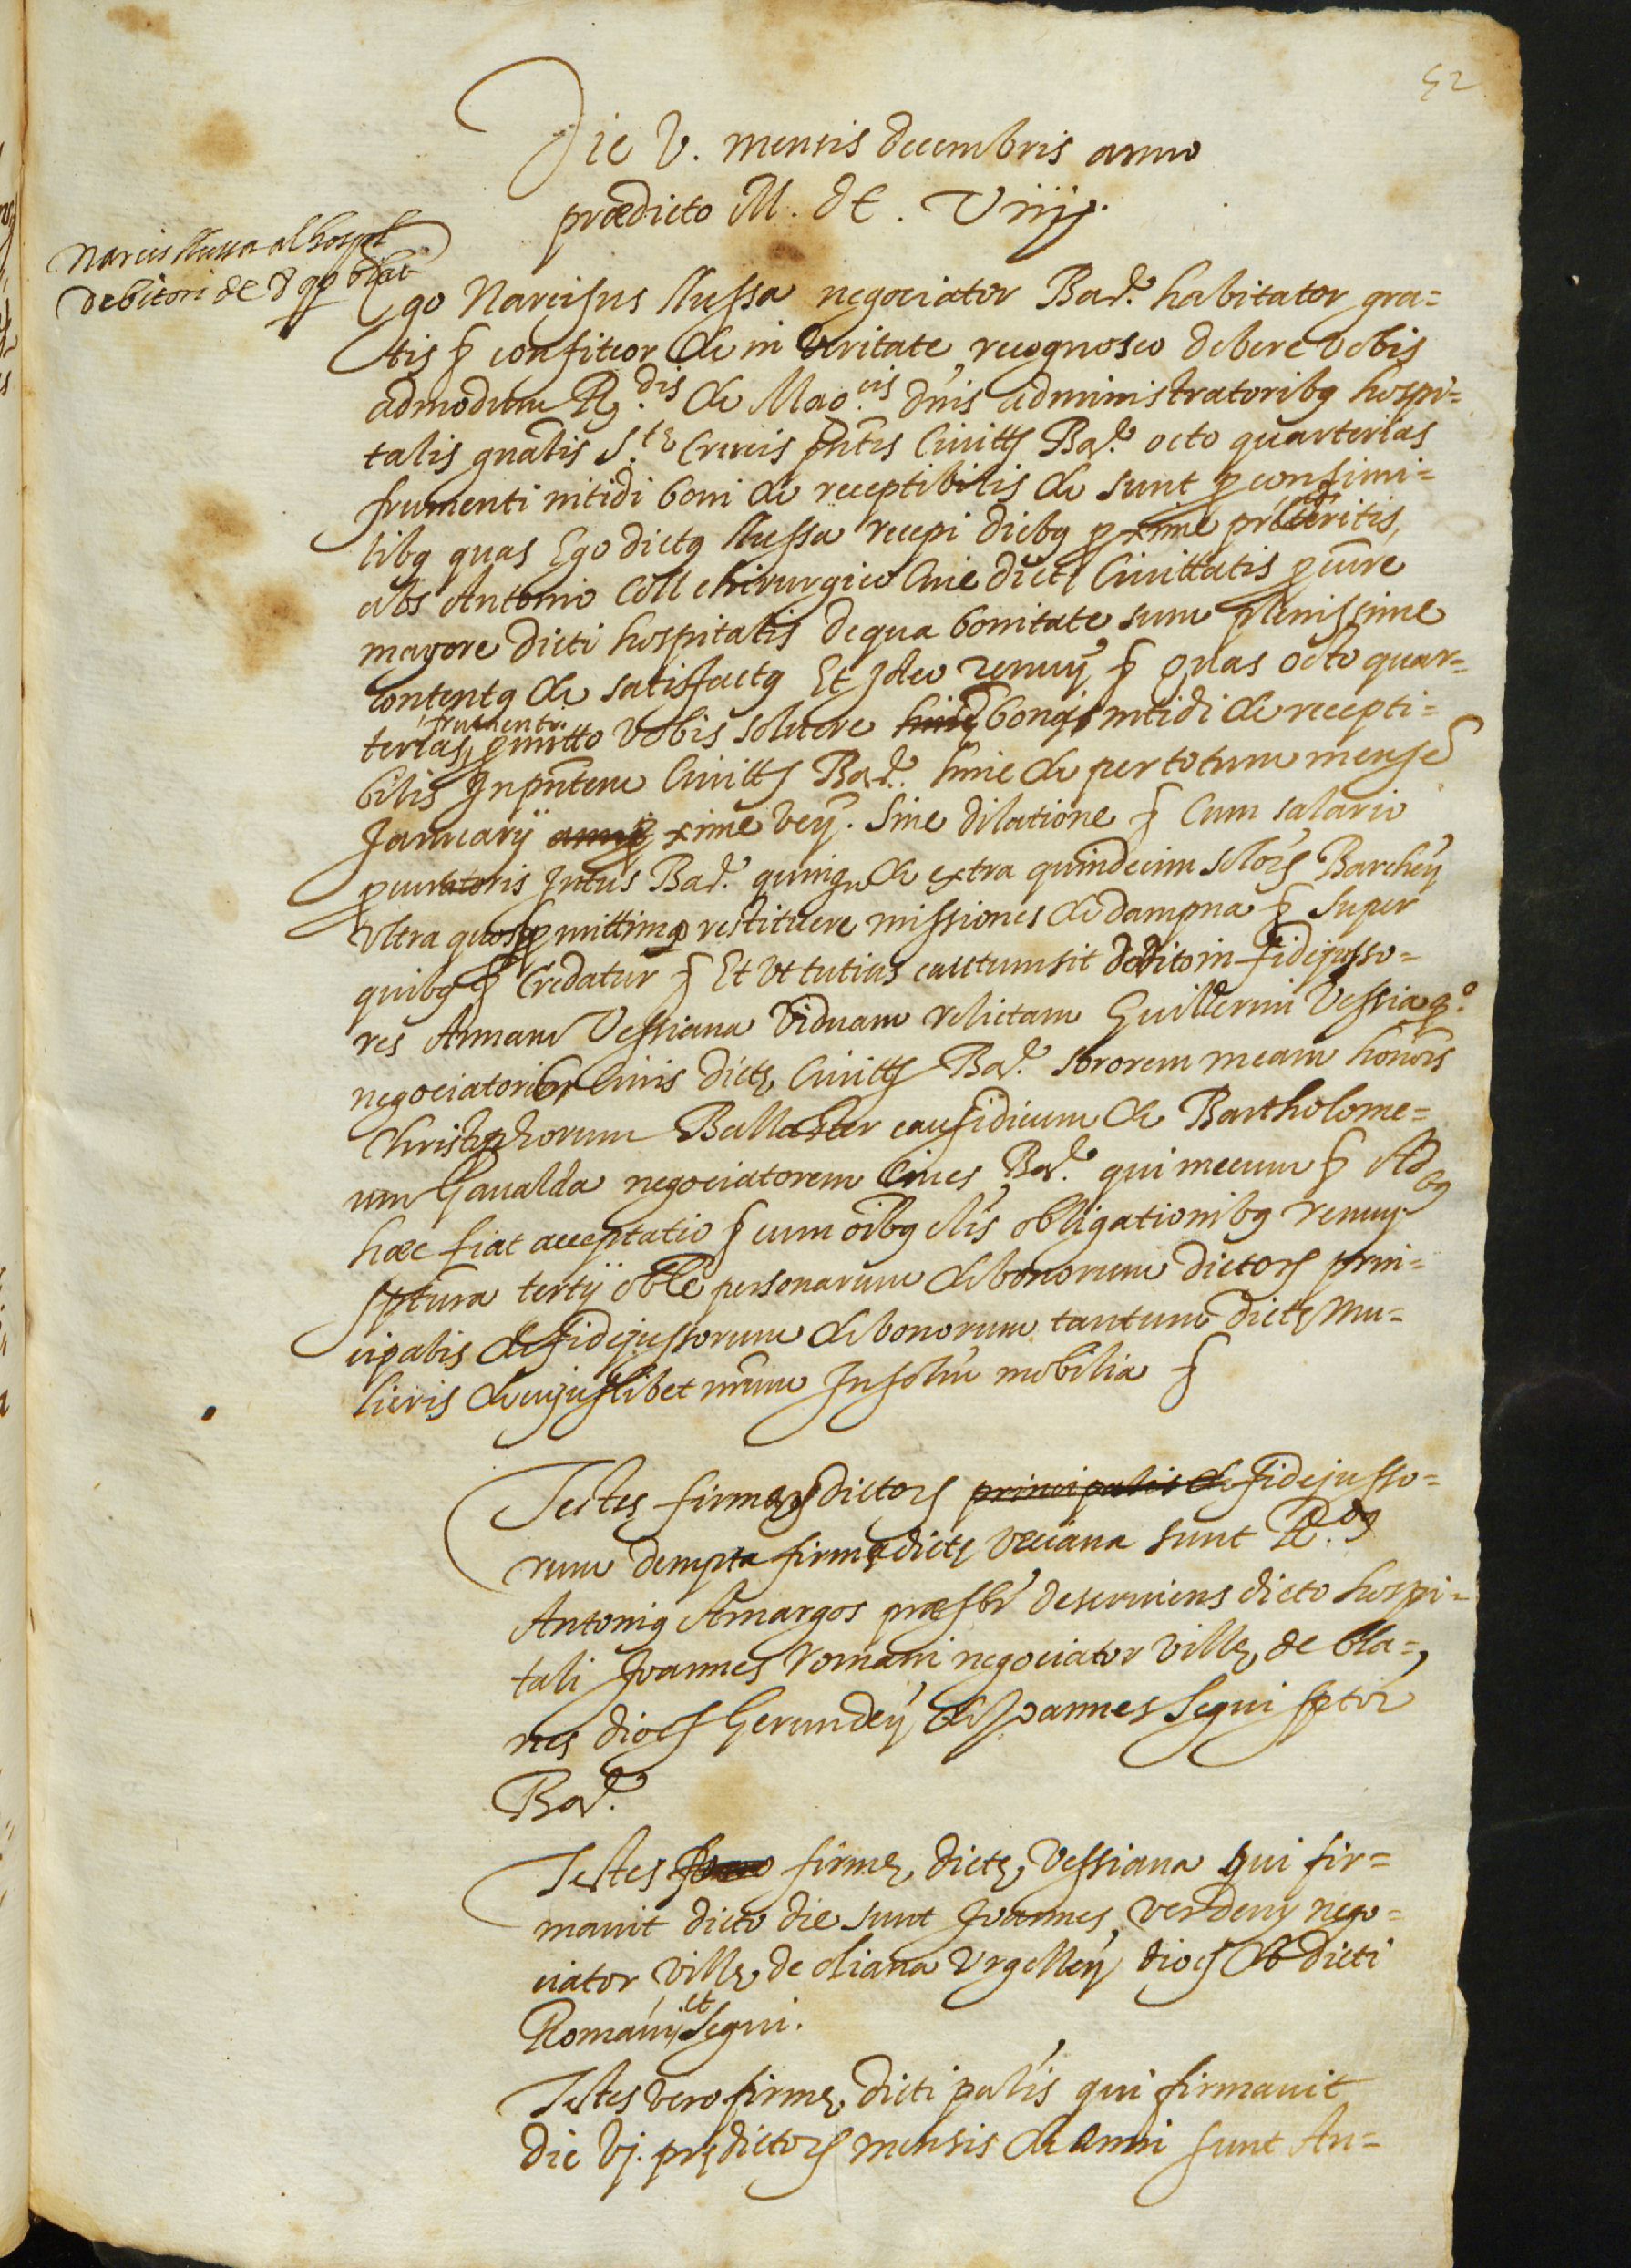 52
Die V. mensis decembris anno
prædicto M. DC. Viiij.
Narcis llussa al hospl
debitori de 8 qrs blat
Ego Narcisus llussa negociator Bar.e habitator gra=
tis § confiteor & in veritate recognosco debere vobis
admodum R.dis & Mag.cis dnis administratoribꝫ hospi=
talis gnalis S.tę Crucis pntis Civittis Bar.e octo quarterias
frumenti nitidi boni & receptibilis & sunt p consimi=
libꝫ quas Ego dictꝰ llussa recepi diebꝫ pxime preteritis,
abs Antonio Coll chirurgico Cive dictę Civittatis pcure
mayore dicti hospitalis de qua bonitate sum plenissime
contentꝰ & satisfactꝰ Et Ideo renuy § quas octo quar=
terias frumenti pmitto vobis solvere boni nitidi & recepti=
bilis In pntem Civitts Bar.e hinc & per totum mense
Januarij xime ven. Sine dilatione § Cum salario
pcuratoris Intus Bar.e quinq & extra quindecim solors Barchen
Ultra quos pmittimꝰ restituere missiones & dampna § Super
quibꝫ § Credatur § Et Ut tutius cautum sit do vobis in fidejusso=
res Annam Vessiana viduam relictam Guillermi Vessia q.o
negociatoris Civis dictę Civitts Bar.e sororem meam honors
Christophorum Ballester causidicum & Bartholome=
um Gavalda negociatorem Cives Bar.e qui mecum § Ad
hæc fiat acceptatio § cum oibꝫ clis obligationibꝫ renuy.
sptura tertij oble personarum & bonorum dictors prin=
cipalis & fidejussorum & bonorum tantum dictę mu=
lieris & cujuslibet nrum In solm mobilia §
Testes firmę dictors principalis & fidejusso=
rum dempta firma dictę veciana sunt R.dꝰ
Antoniꝰ Amargos præsbr deserviens dicto hospi=
tali Joannes Romani negociator villę de bla=
nes diocs Gerunden & Joannes Segui sptor
Bar.e
Testes firmę dictę Vessiana qui fir=
mavit dicto die sunt Joannes verdeny nego=
ciator villę de oliana Urgellen diocs & dicti
Romani et Segui.
Testes vero firmę dicti palis qui firmavit
die Vj. prędictors mensis & anni sunt An=